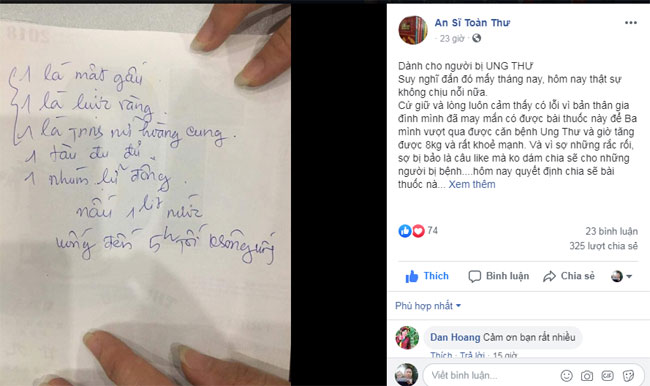 2018
1 lá mật gấu
1 lá lược vàng
1 lá Trinh nữ hoàng cung
1 tàu đu đủ
1 nhúm lử đồng
nấu 1 lít nước
uống đến 5h tối không uống
An Sĩ Toàn Thư
23 giờ
Dành cho người bị UNG THƯ
Suy nghĩ đắn đó mấy tháng nay, hôm nay thật sự
không chịu nỗi nữa.
Cứ giữ và lòng luôn cảm thấy có lỗi vì bản thân gia
đình mình đã may mắn có được bài thuốc này để Ba
mình vượt qua được căn bệnh Ung Thư và giờ tăng
được 8kg và rất khoẻ mạnh. Và vì sợ những rắc rối,
sợ bị bảo là câu like mà ko dám chia sẽ cho những
người bị bệnh....hôm nay quyết định chia sẽ bài
thuốc nà... Xem thêm
74
23 bình luận
325 lượt chia sẻ
Thích Bình luận Chia sẻ
Phù hợp nhất
Dan Hoang Cảm ơn bạn rất nhiều
Thích · Trả lời · 15 giờ
Viết bình luận...
GIF